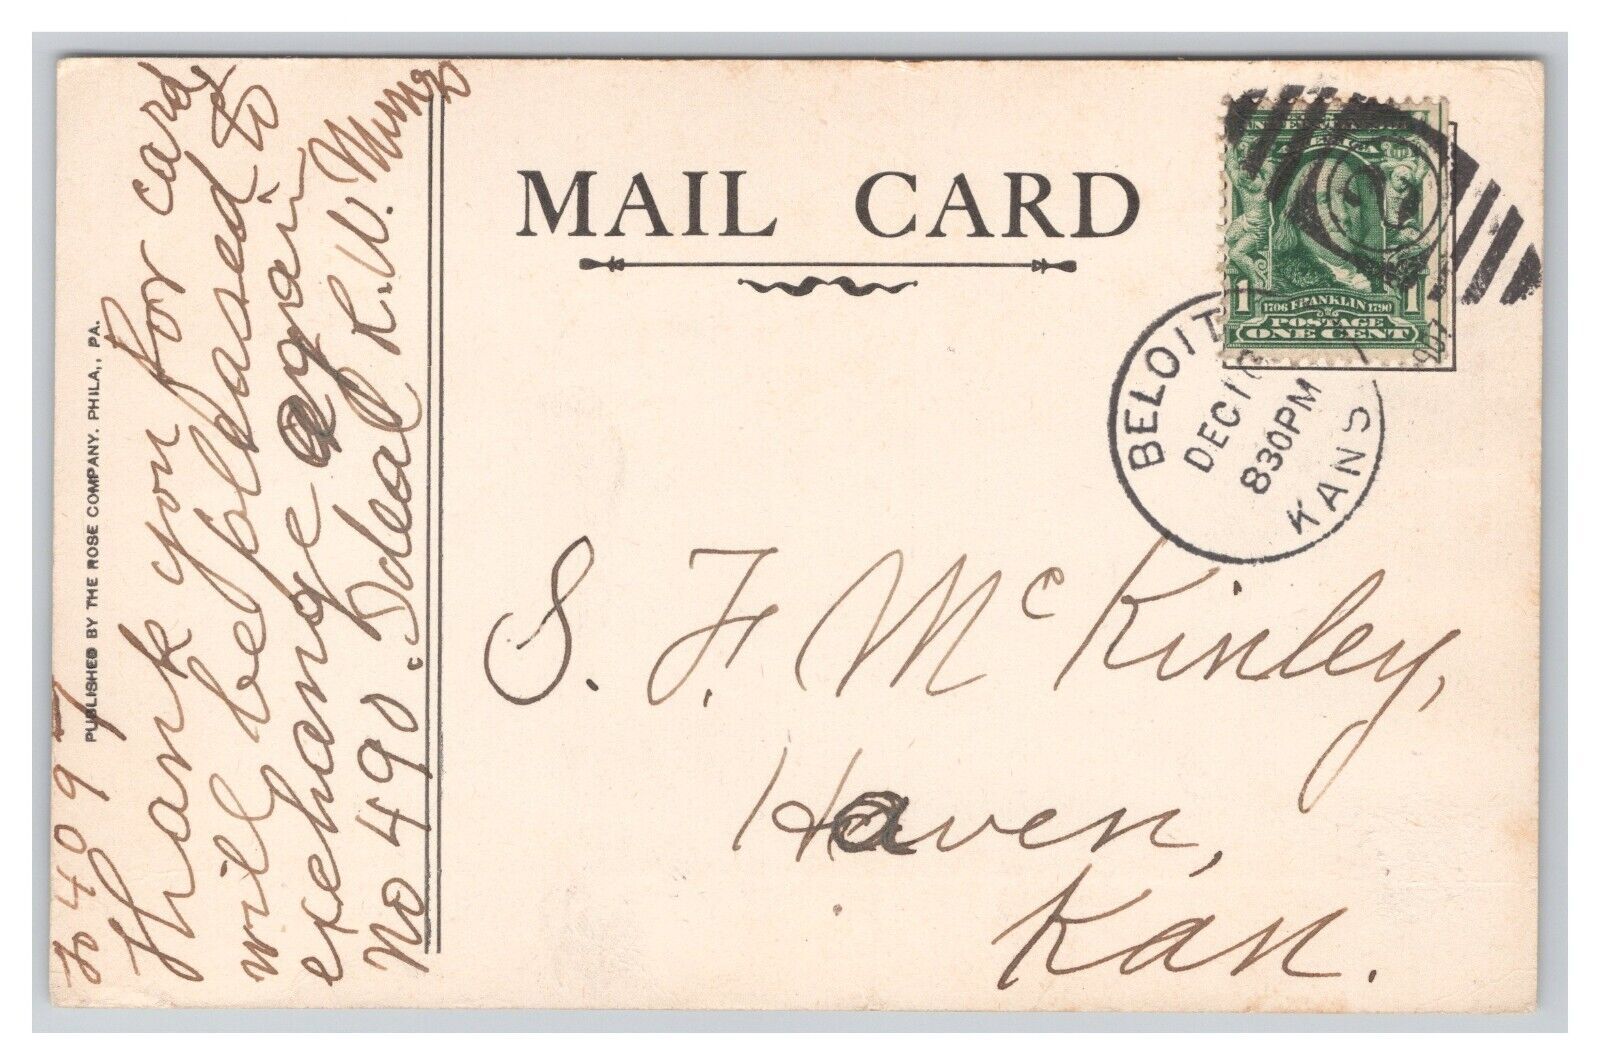 MAIL CARD
PUBLISHED BY THE ROSE COMPANY, PHILA., PA.
to 4097
Thank you for card
will be pleased to
exchange again
No 490. Ideal R.W.
UNITED STATES OF AMERICA
1706 FRANKLIN 1790
1 1
POSTAGE
ONE CENT
2
BELOIT
DEC
830PM
1907
KANS
S. F. McKinley,
Haven,
Kan.